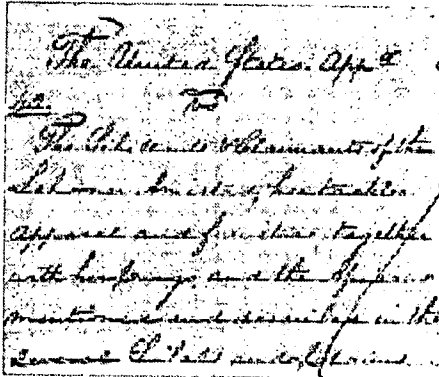 The United States. Appts
vs
The Libellants & Claimants of the
Schooner Amistad, her tackle
apparel and furniture together
with her cargo and the Africans
mentioned and described in the
several Libels and Claims